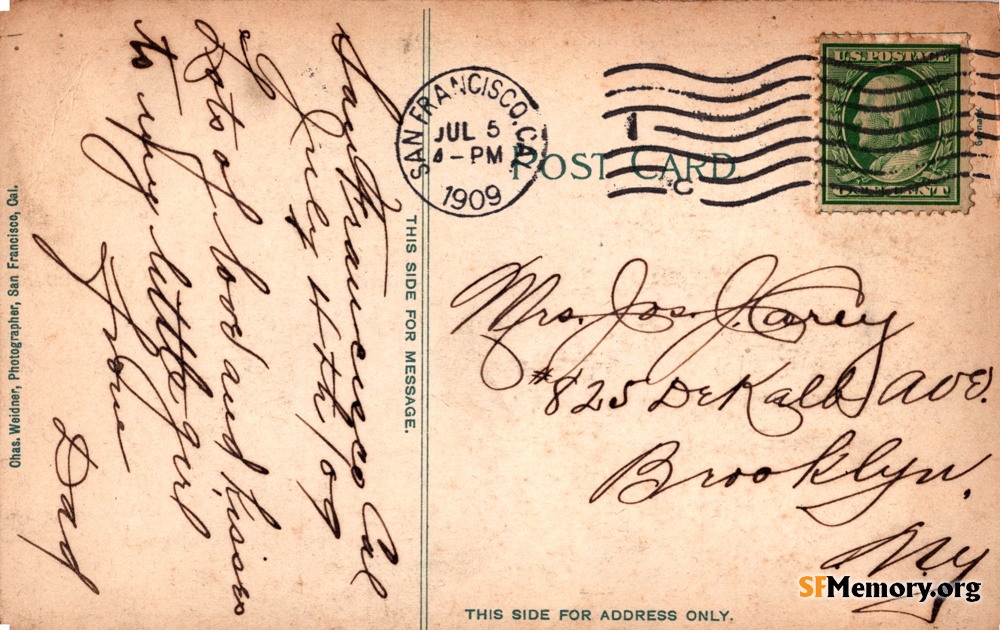 San Francisco Cal
July 4th/09
Lots of love and kisses
to my little girl
From
Dad
THIS SIDE FOR MESSAGE.
Chas. Weidner, Photographer, San Francisco, Cal.
SAN FRANCISCO, CAL.
JUL 5
4-PM
1909
POST CARD
U.S. POSTAGE
Mrs. Jos. J. Carey
#825 DeKalb Ave.
Brooklyn,
N.Y
THIS SIDE FOR ADDRESS ONLY.
SFMemory.org